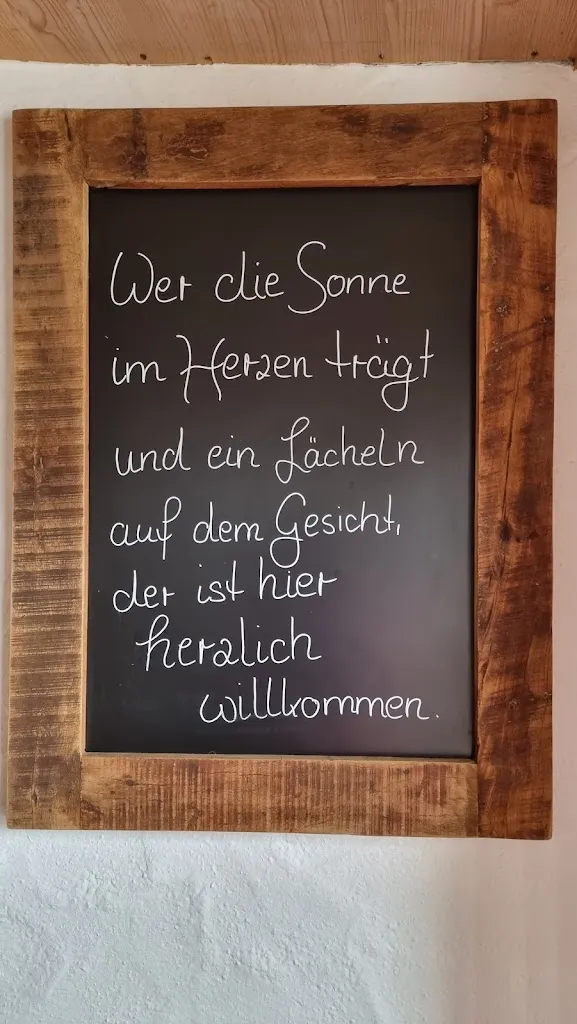 Wer die Sonne
im Herzen trägt
und ein Lächeln
auf dem Gesicht,
der ist hier
herzlich
willkommen.